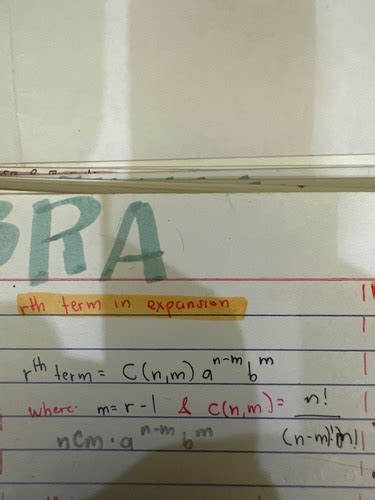 BRA
rth term in expansion
rth term = C(n,m) a^n-m b^m
where m=r-1 & C(n,m) = n!
nCm · a^n-m b^m (n-m)!m!